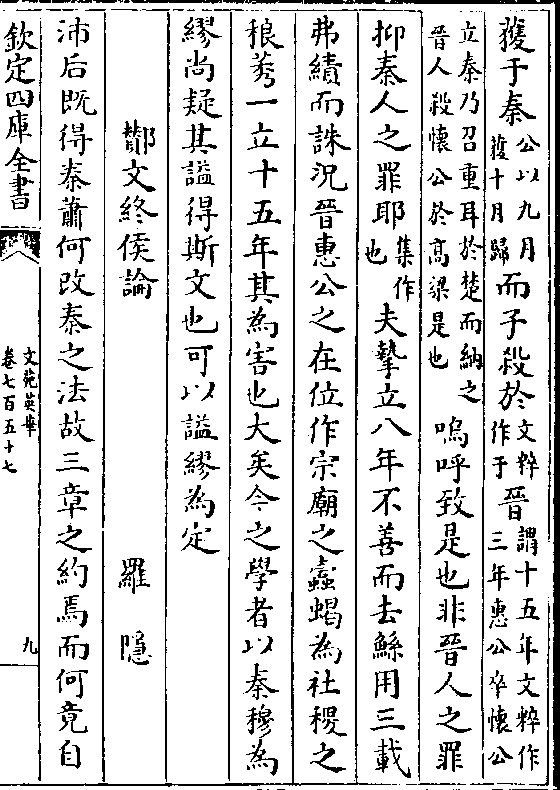 獲于秦公以九月獲十月歸而子殺於文粹作于晉謂十五年文粹作三年惠公卒懷公
立秦乃召重耳於楚而納之晉人殺懷公於高梁是也嗚呼致是也非晉人之罪
抑秦人之罪耶集作也夫摯立八年不善而去鯀用三載
弗績而誅況晉惠公之在位作宗廟之蠧蝎為社稷之
稂莠一立十五年其為害也大矣今之學者以秦穆為
繆尚疑其謚得斯文也可以謚繆為定
酇文終侯論 羅隱
沛后既得秦蕭何改秦之法故三章之約焉而何竟自
欽定四庫全書
文苑英華
卷七百五十七
九